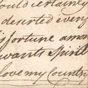 ould certainly
devoted every
isfortune amon
wants Spirit
love my Country